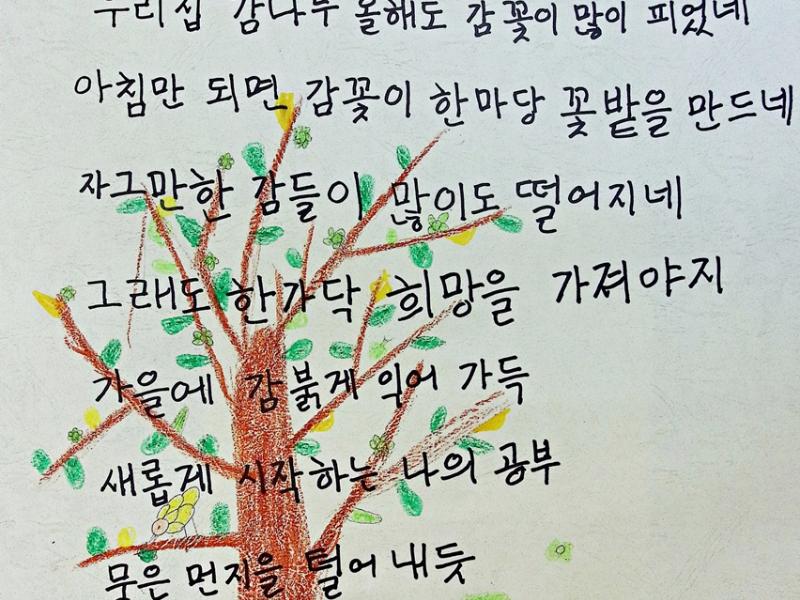 우리집 감나무 올해도 감꽃이 많이 피었네
아침만 되면 감꽃이 한마당 꽃밭을 만드네
자그만한 감들이 많이도 떨어지네
그래도 한가닥 희망을 가져야지
가을에 감 붉게 익어 가득
새롭게 시작하는 나의 공부
묵은 먼지을 털어 내듯